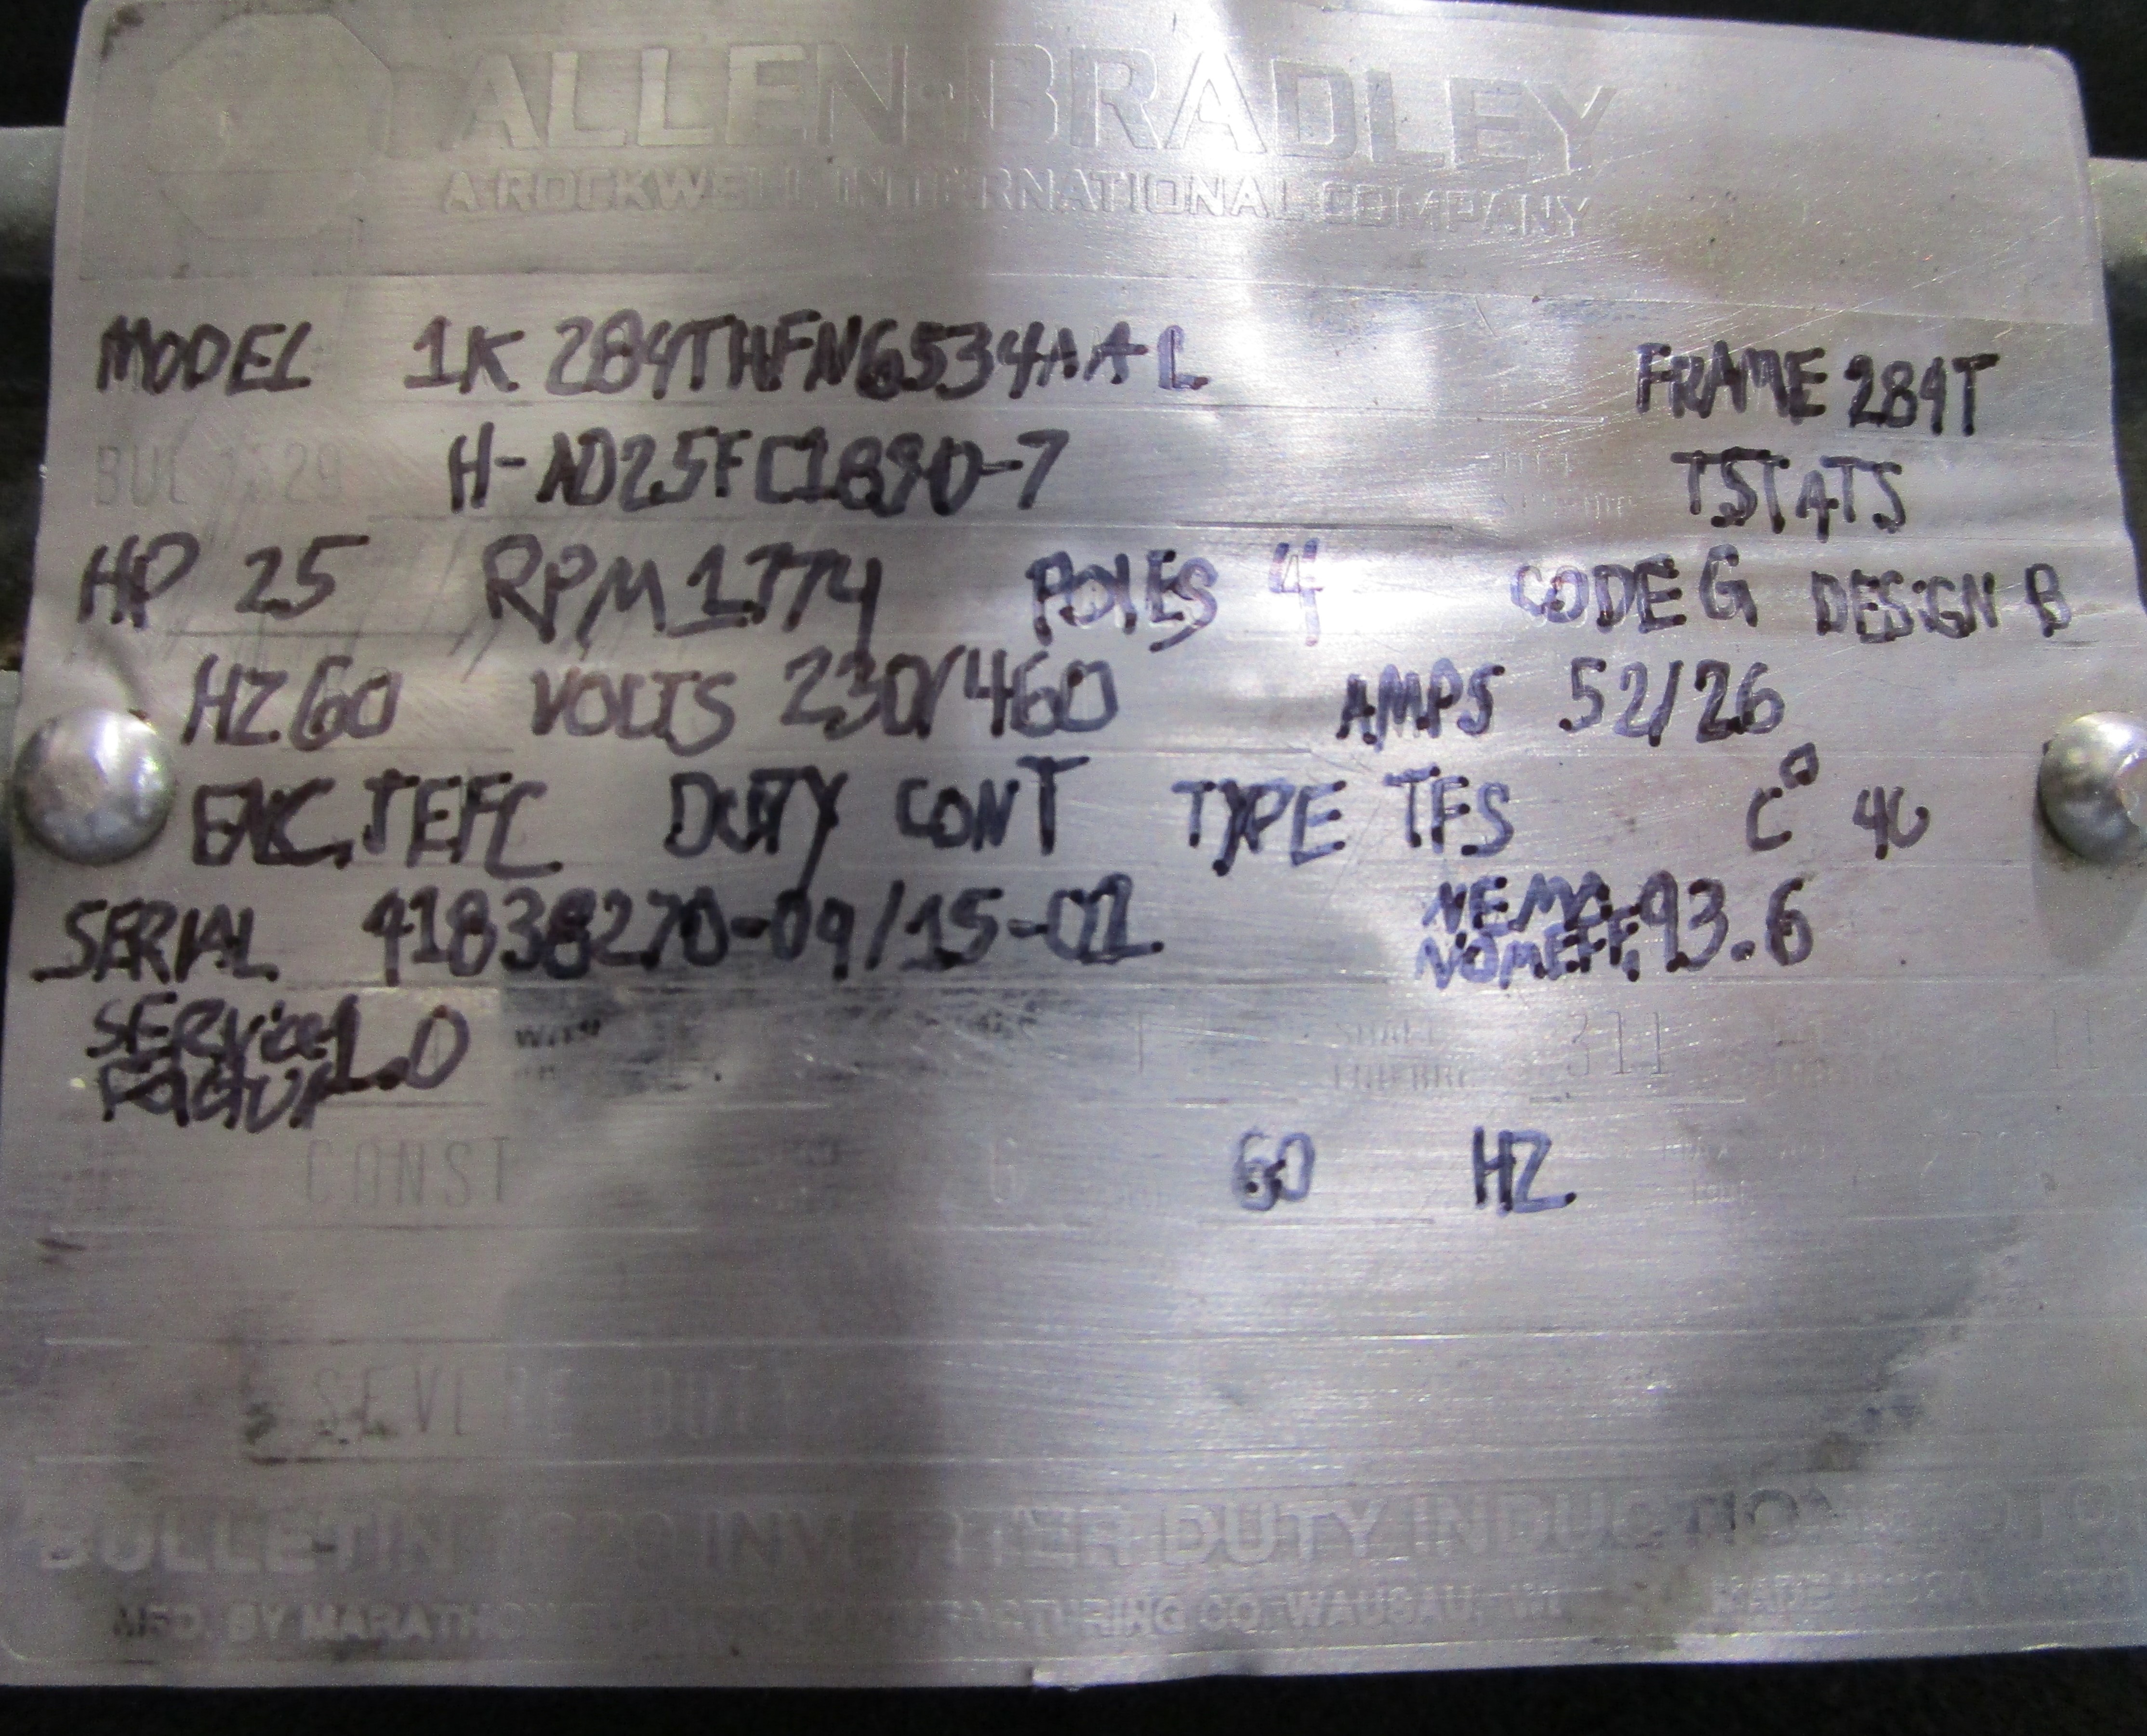 ALLEN-BRADLEY
A ROCKWELL INTERNATIONAL COMPANY
MODEL 1K 284THFN6534AA-L FRAME 284T
BUL 1329 H-AD25FC1890-7 TSTATS
HP 25 RPM 1774 POLES 4 CODE G DESIGN B
HZ 60 VOLTS 230/460 AMPS 52/26
ENC. TEFC DUTY CONT TYPE TFS C° 40
SERIAL 41838270-09/15-02 NEMA NOM EFF. 93.6
SERVICE FACTOR 1.0 SHAFT 311
CONST 6 60 HZ
SEVERE DUTY
BULLETIN 1329 INVERTER DUTY INDUCTION MOTOR
MFD. BY MARATHON ELECTRIC MANUFACTURING CO. WAUSAU, WI MADE IN USA